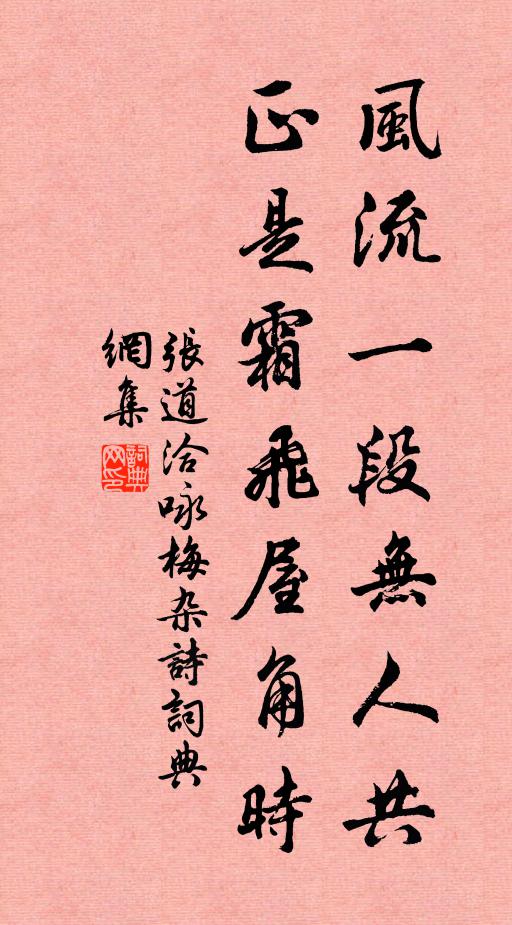 風流一段無人共
正是霜飛屋角時
張道洽咏梅杂詩詞典
網集
詞典
网印